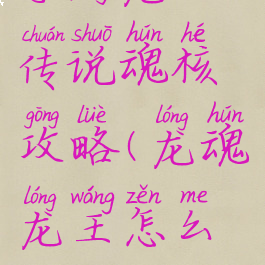 chuán shuō hún hé
传说魂核
gōng lüè lóng hún
攻略(龙魂
lóng wáng zěn me
龙王怎么